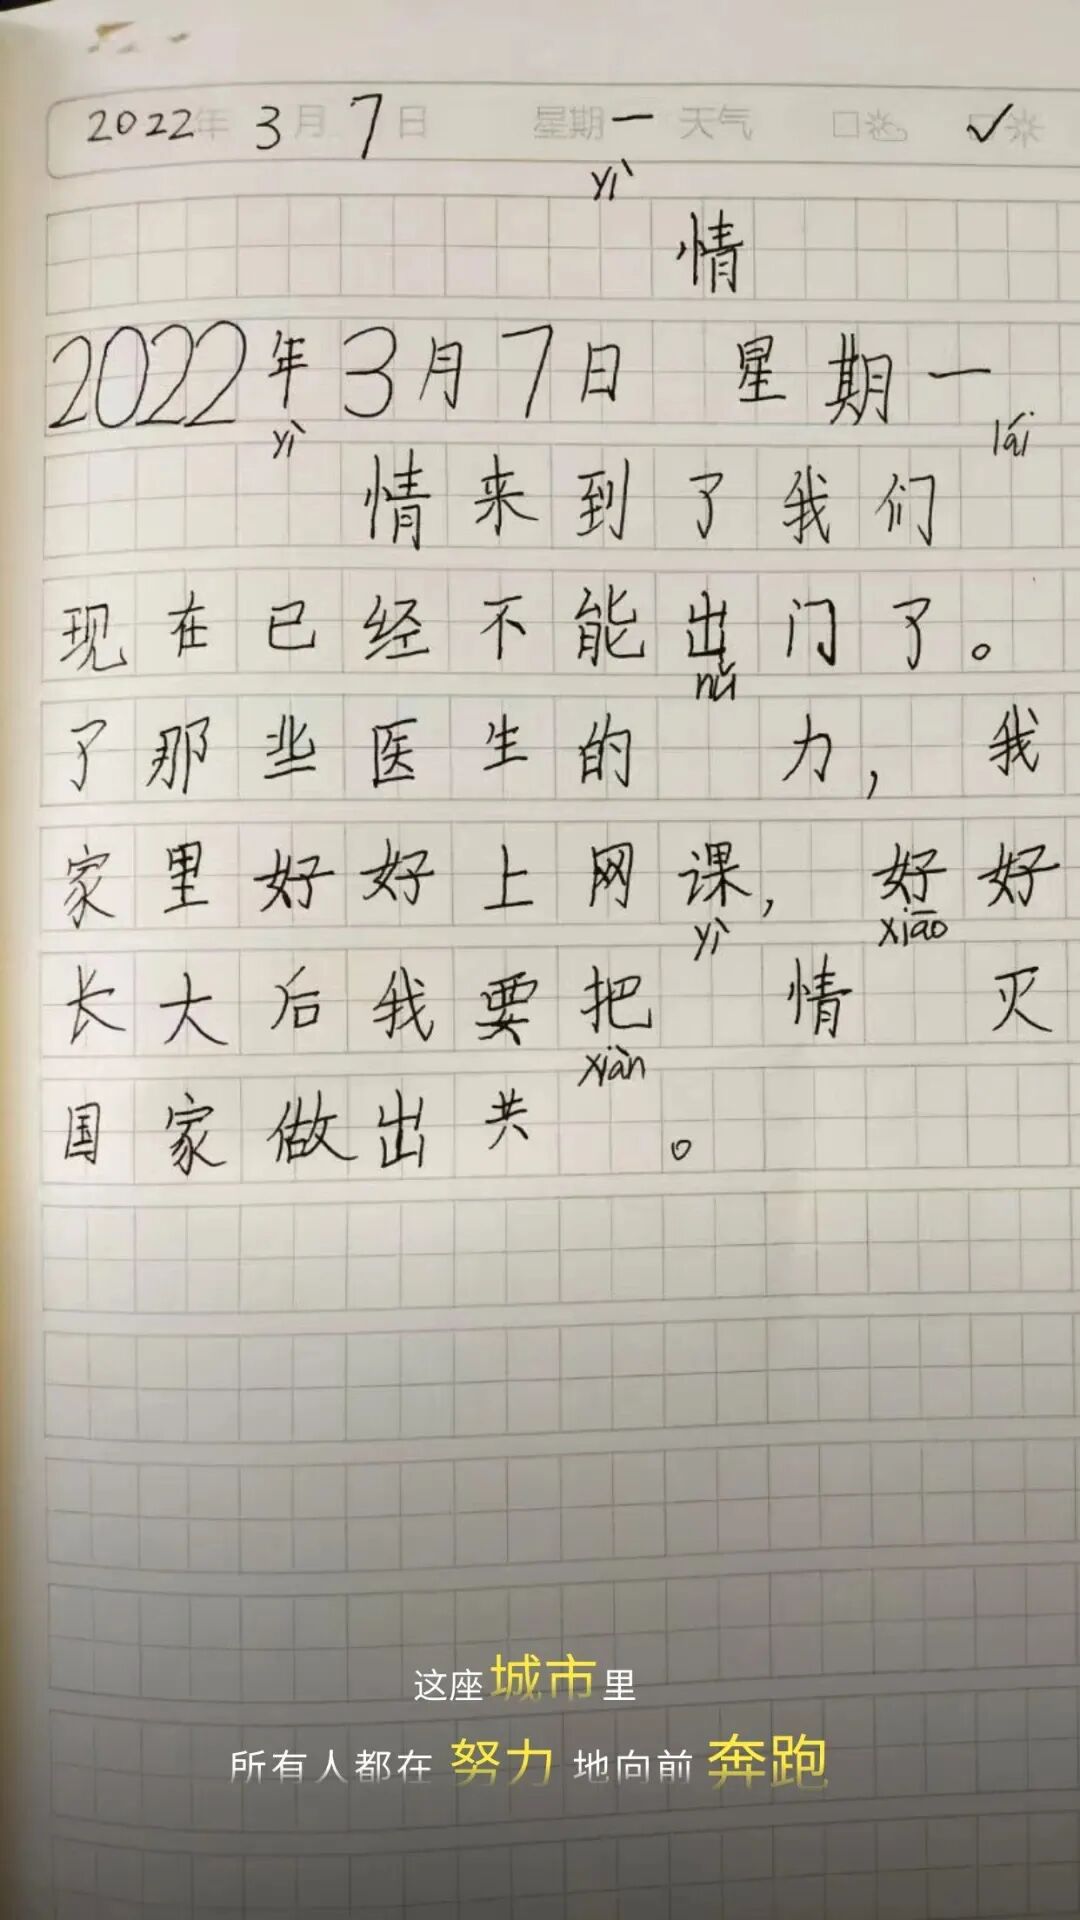 2022年 3月 7日 星期一 天气
yì
情
2022年3月7日 星期一
yì lái
情来到了我们
现在已经不能出门了。
nǔ
了那些医生的 力, 我
家里好好上网课, 好好
yì xiāo
长大后我要把 情 灭
xiàn
国家做出共 。
这座城市里
所有人都在 努力 地向前 奔跑